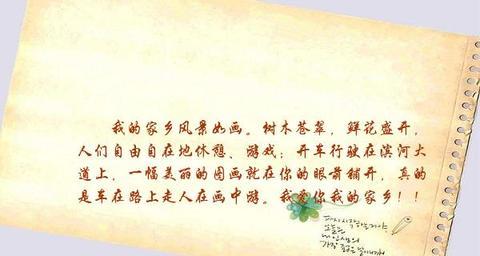 我的家乡风景如画。树木苍翠，鲜花盛开，
人们自由自在地休憩、游戏；开车行驶在滨河大
道上，一幅美丽的图画就在你的眼前铺开，真的
是车在路上走人在画中游。我爱你我的家乡！！
오늘은